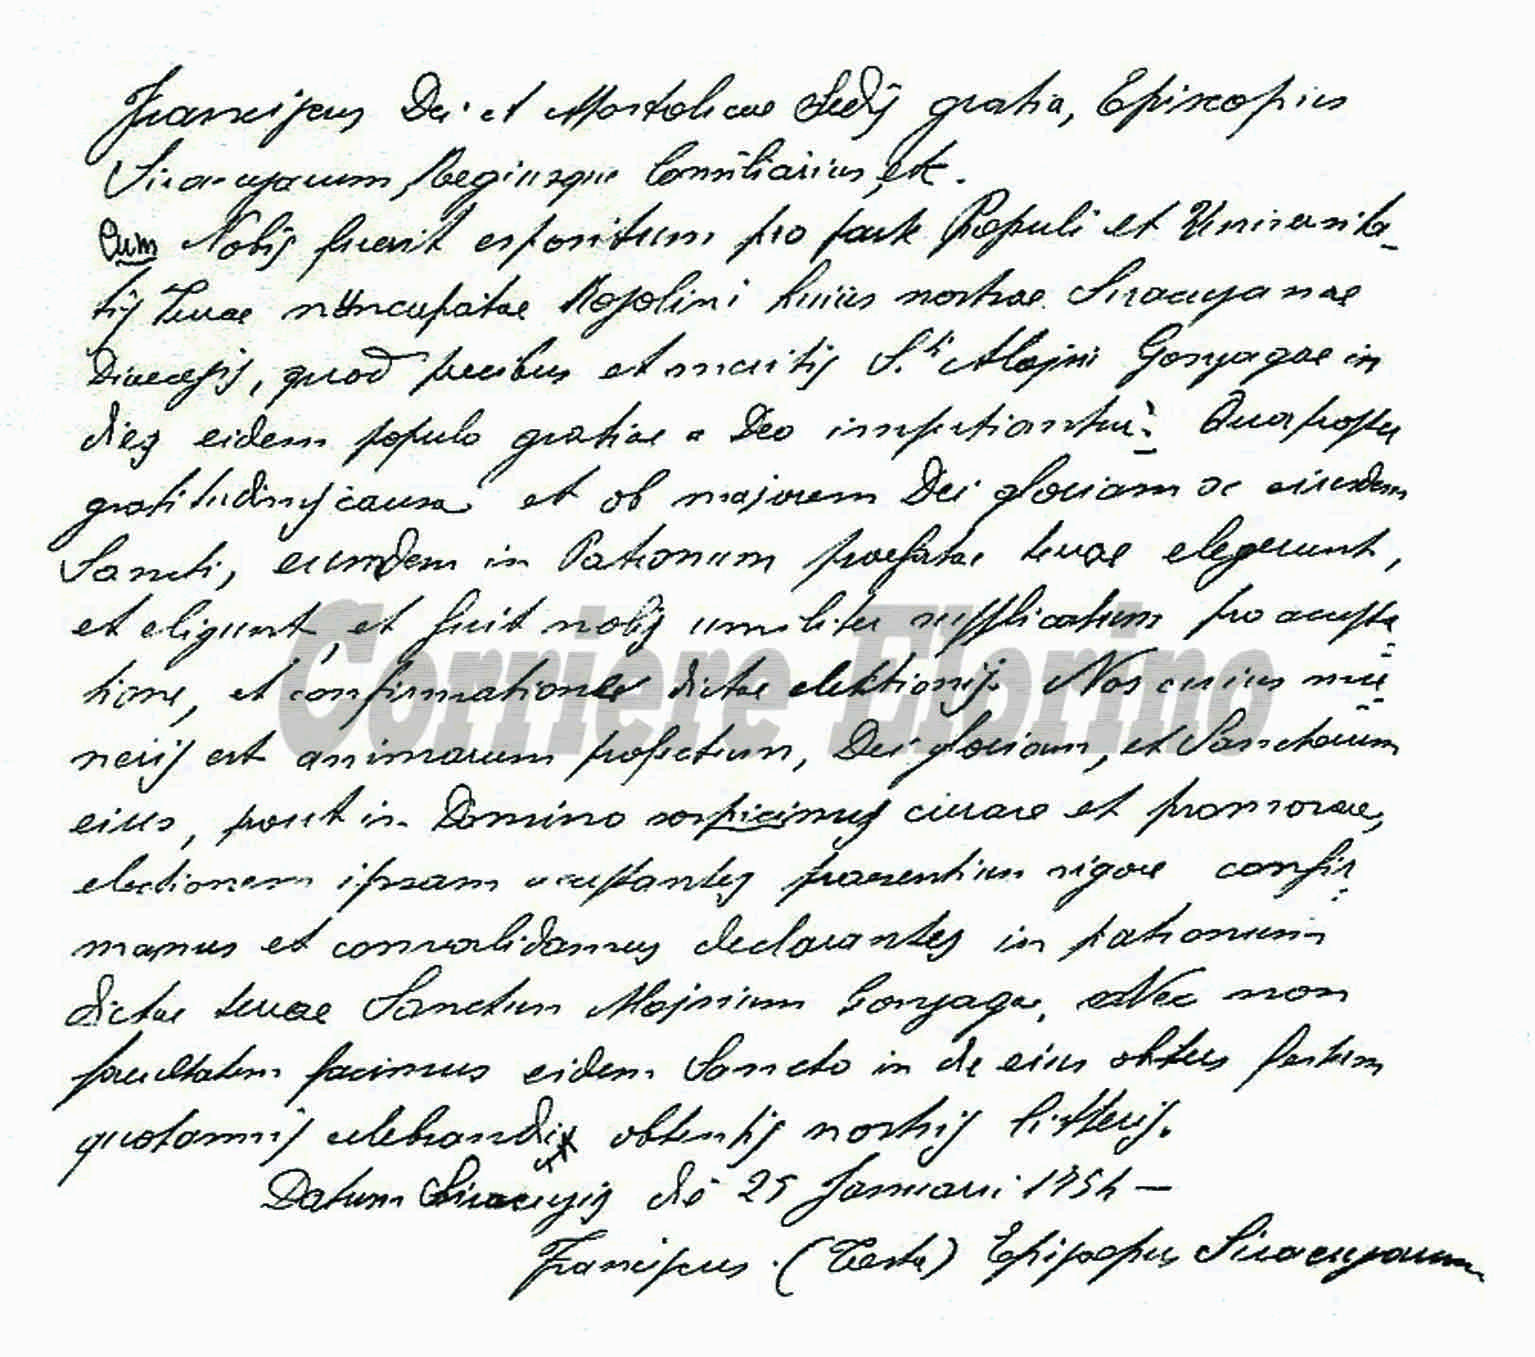 Franciscus Dei et Apostolicae Sedis gratia, Episcopus
Siracusarum, Regiusque Consiliarius, etc.
Cum Nobis fuerit expositum pro parte Populi et Universita-
tis Terrae nuncupatae Rosolini huius nostrae Siracusanae
Diocesis, quod precibus et meritis S.ti Aloisii Gonzagae in
dies eidem populo gratiae a Deo impertiantur: Quapropter
gratitudinis causa et ob majorem Dei gloriam ac eiusdem
Sancti, eumdem in Patronum praefatae terrae elegerunt,
et eligunt, et fuit nobis umiliter supplicatum pro accepta-
tione, et confirmatione dictae elektionis. Nos cuius mu-
neris est animarum profectum, Dei gloriam, et Sanctorum
eius, prout in Domino curare et promovere,
electionem ipsam acceptantes praesentium vigore confir-
mamus et convalidamus declarantes in patronum
dictae terrae Sanctum Aloisium Gonzaga, Nec non
facultatem facimus eidem Sancto in die eius obitus festum
quotannis celebrandi obtentis nostris litteris.
Datum Siracusis die 25 Januarii 1754 —
Franciscus (Testa) Episcopus Siracusarum
Corriere Elorino